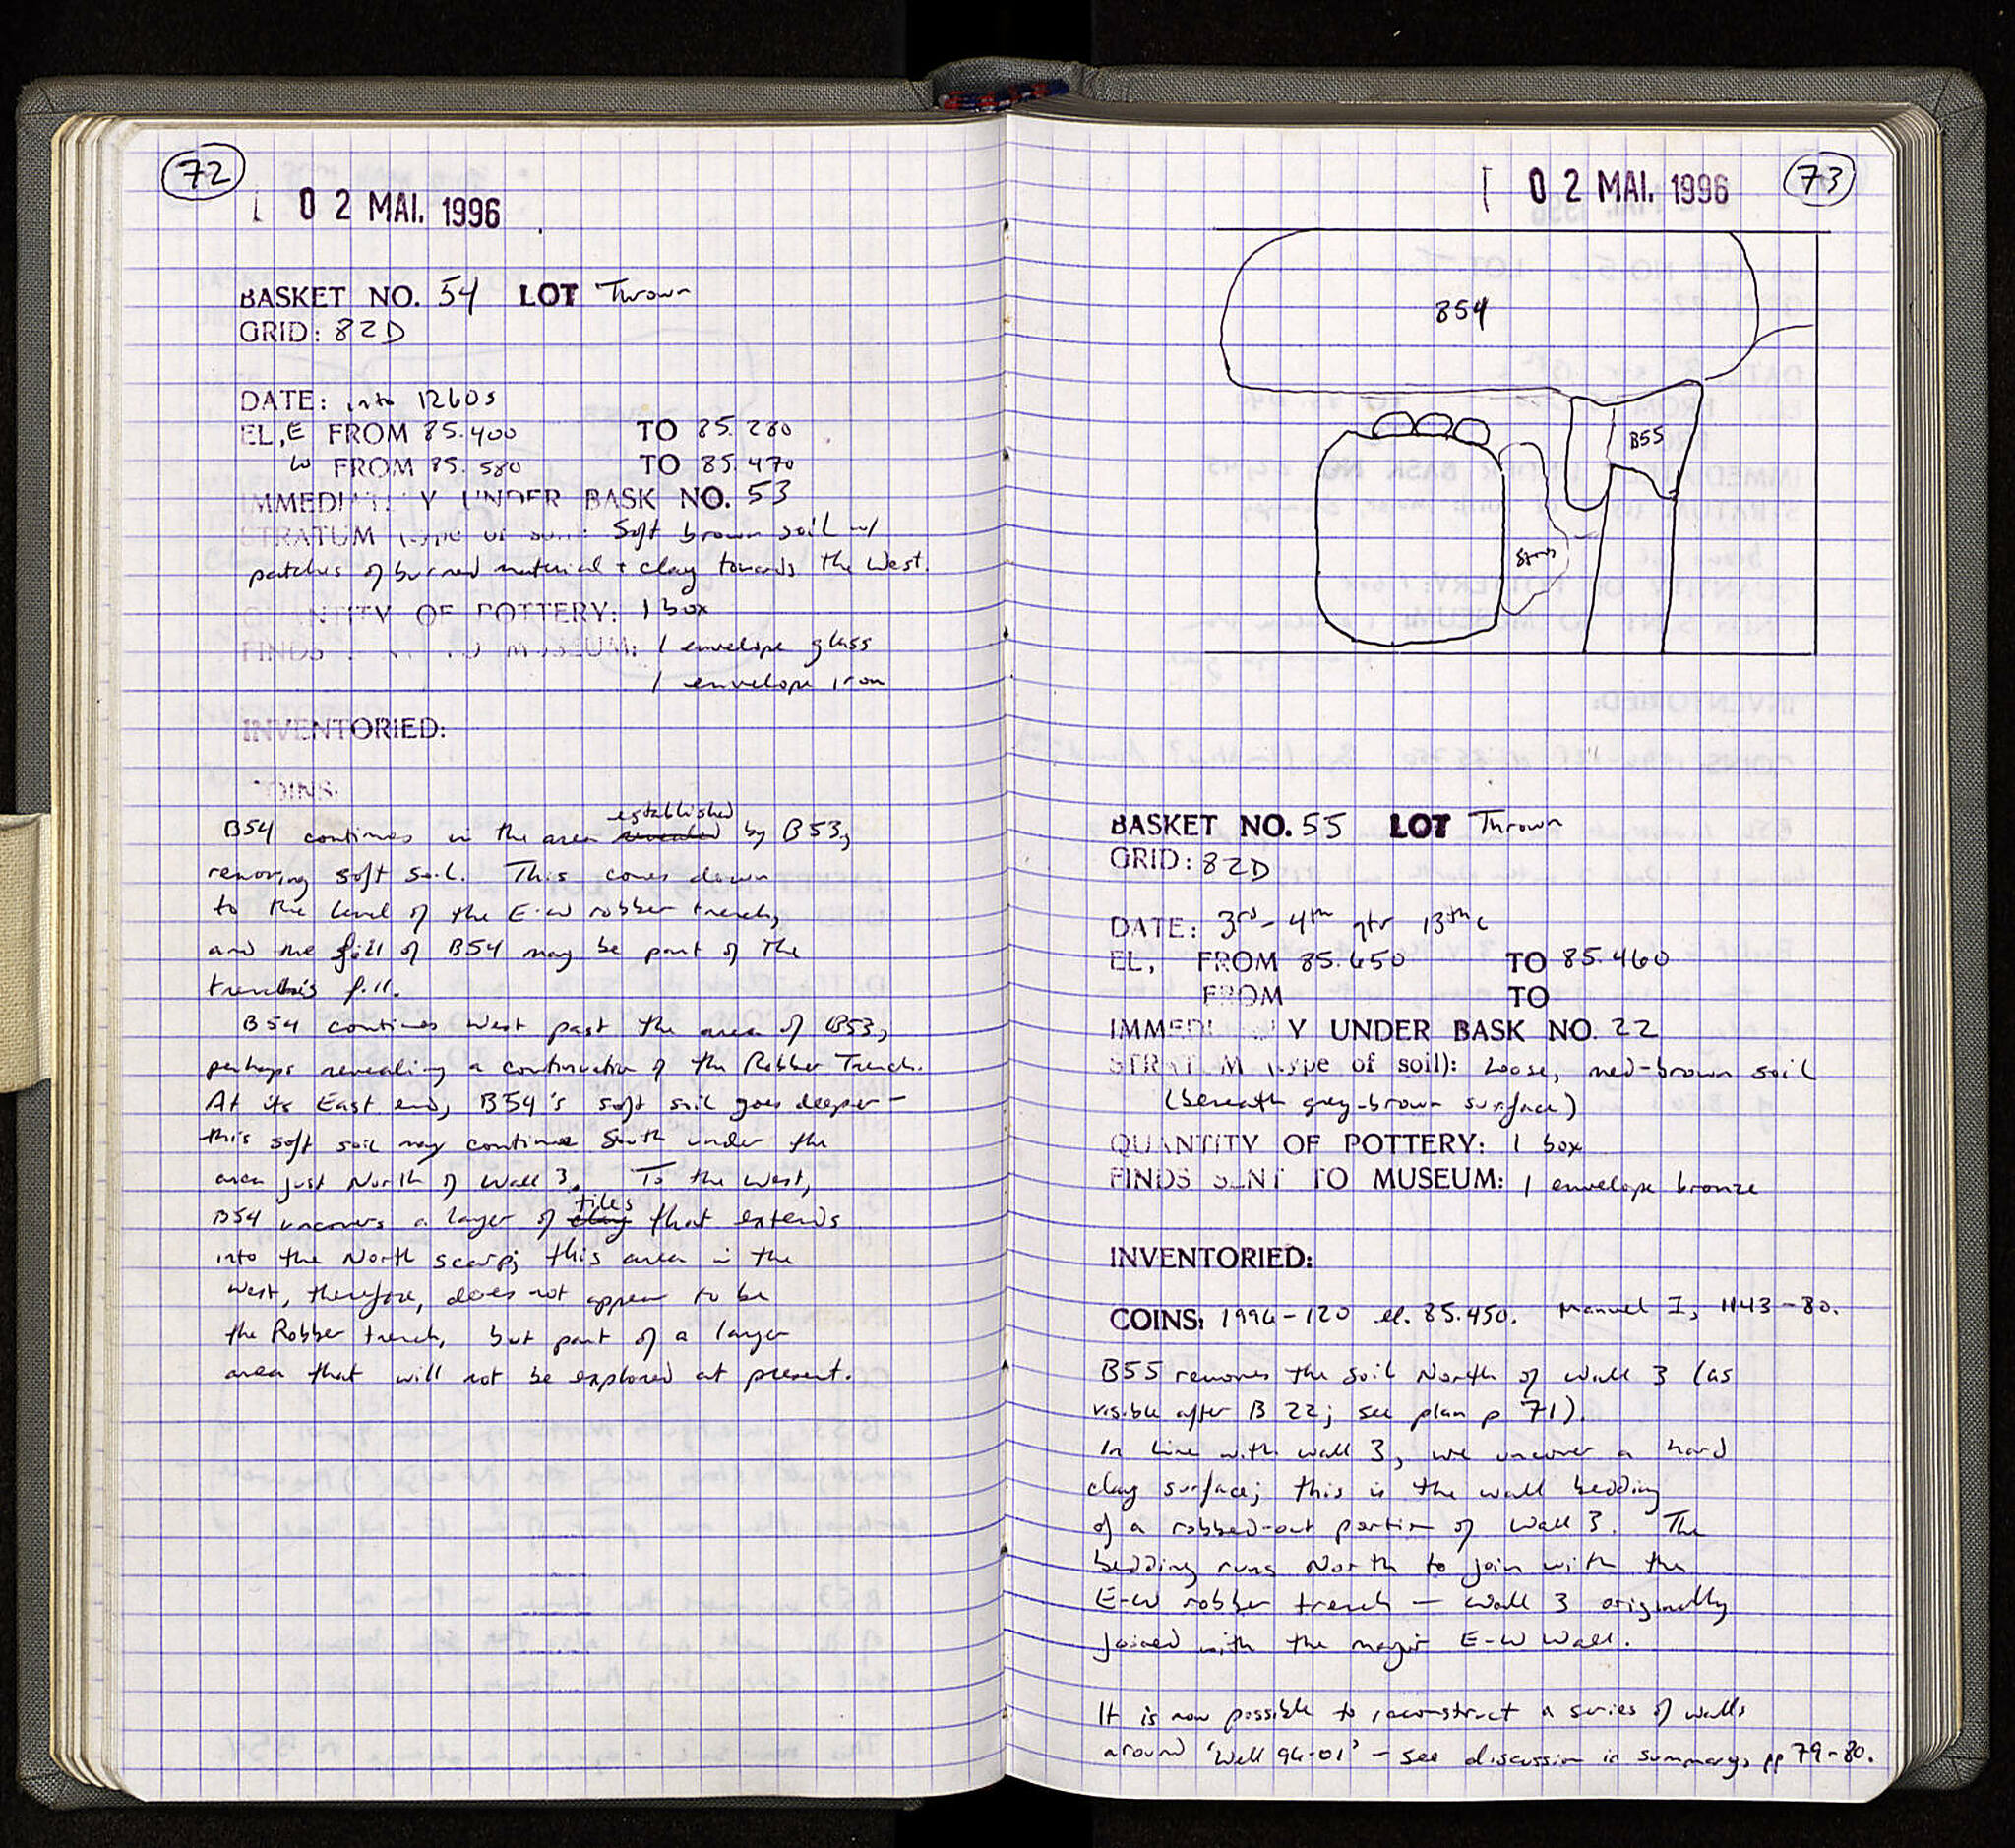 72
02 MAI. 1996
BASKET NO. 54 LOT Thrown
GRID: 82D
DATE: into 1260s
EL, E FROM 85.400 TO 85.280
W FROM 85.580 TO 85.470
IMMEDI Y UNDER BASK NO. 53
STRATUM (type of soil): Soft brown soil w/
patches of burned material + clay towards the West.
QUANTITY OF POTTERY: 1 box
FINDS TO MUSEUM: 1 envelope glass
1 envelope iron
INVENTORIED:
COINS:
established
B54 continues in the area revealed by B53,
removing soft soil. This comes down
to the level of the E-W robber trench,
and the fill of B54 may be part of the
trench's fill.
B54 continues West past the area of B53,
perhaps revealing a continuation of the Robber Trench.
At its East end, B54's soft soil goes deeper –
this soft soil may continue South under the
area just North of Wall 3. To the West,
tiles
B54 uncovers a layer of clay that extends
into the North scarp; this area in the
West, therefore, does not appear to be
the Robber trench, but part of a larger
area that will not be explored at present.
02 MAI. 1996
73
B54
B55
BASKET NO. 55 LOT Thrown
GRID: 82D
DATE: 3rd - 4th qtr 13th c
EL, FROM 85.650 TO 85.460
FROM TO
IMMEDI Y UNDER BASK NO. 22
STRATUM (type of soil): Loose, med-brown soil
(beneath grey-brown surface)
QUANTITY OF POTTERY: 1 box
FINDS SENT TO MUSEUM: 1 envelope bronze
INVENTORIED:
COINS: 1996-120 el. 85.450. Manuel I, 1143-80.
B55 removes the soil North of Wall 3 (as
visible after B 22; see plan p 71).
In line with wall 3, we uncover a hard
clay surface; this is the wall bedding
of a robbed-out portion of Wall 3. The
bedding runs North to join with the
E-W robber trench – Wall 3 originally
joined with the major E-W Wall.
It is now possible to reconstruct a series of walls
around 'Well 96-01' – see discussion in summary, pp 79-80.